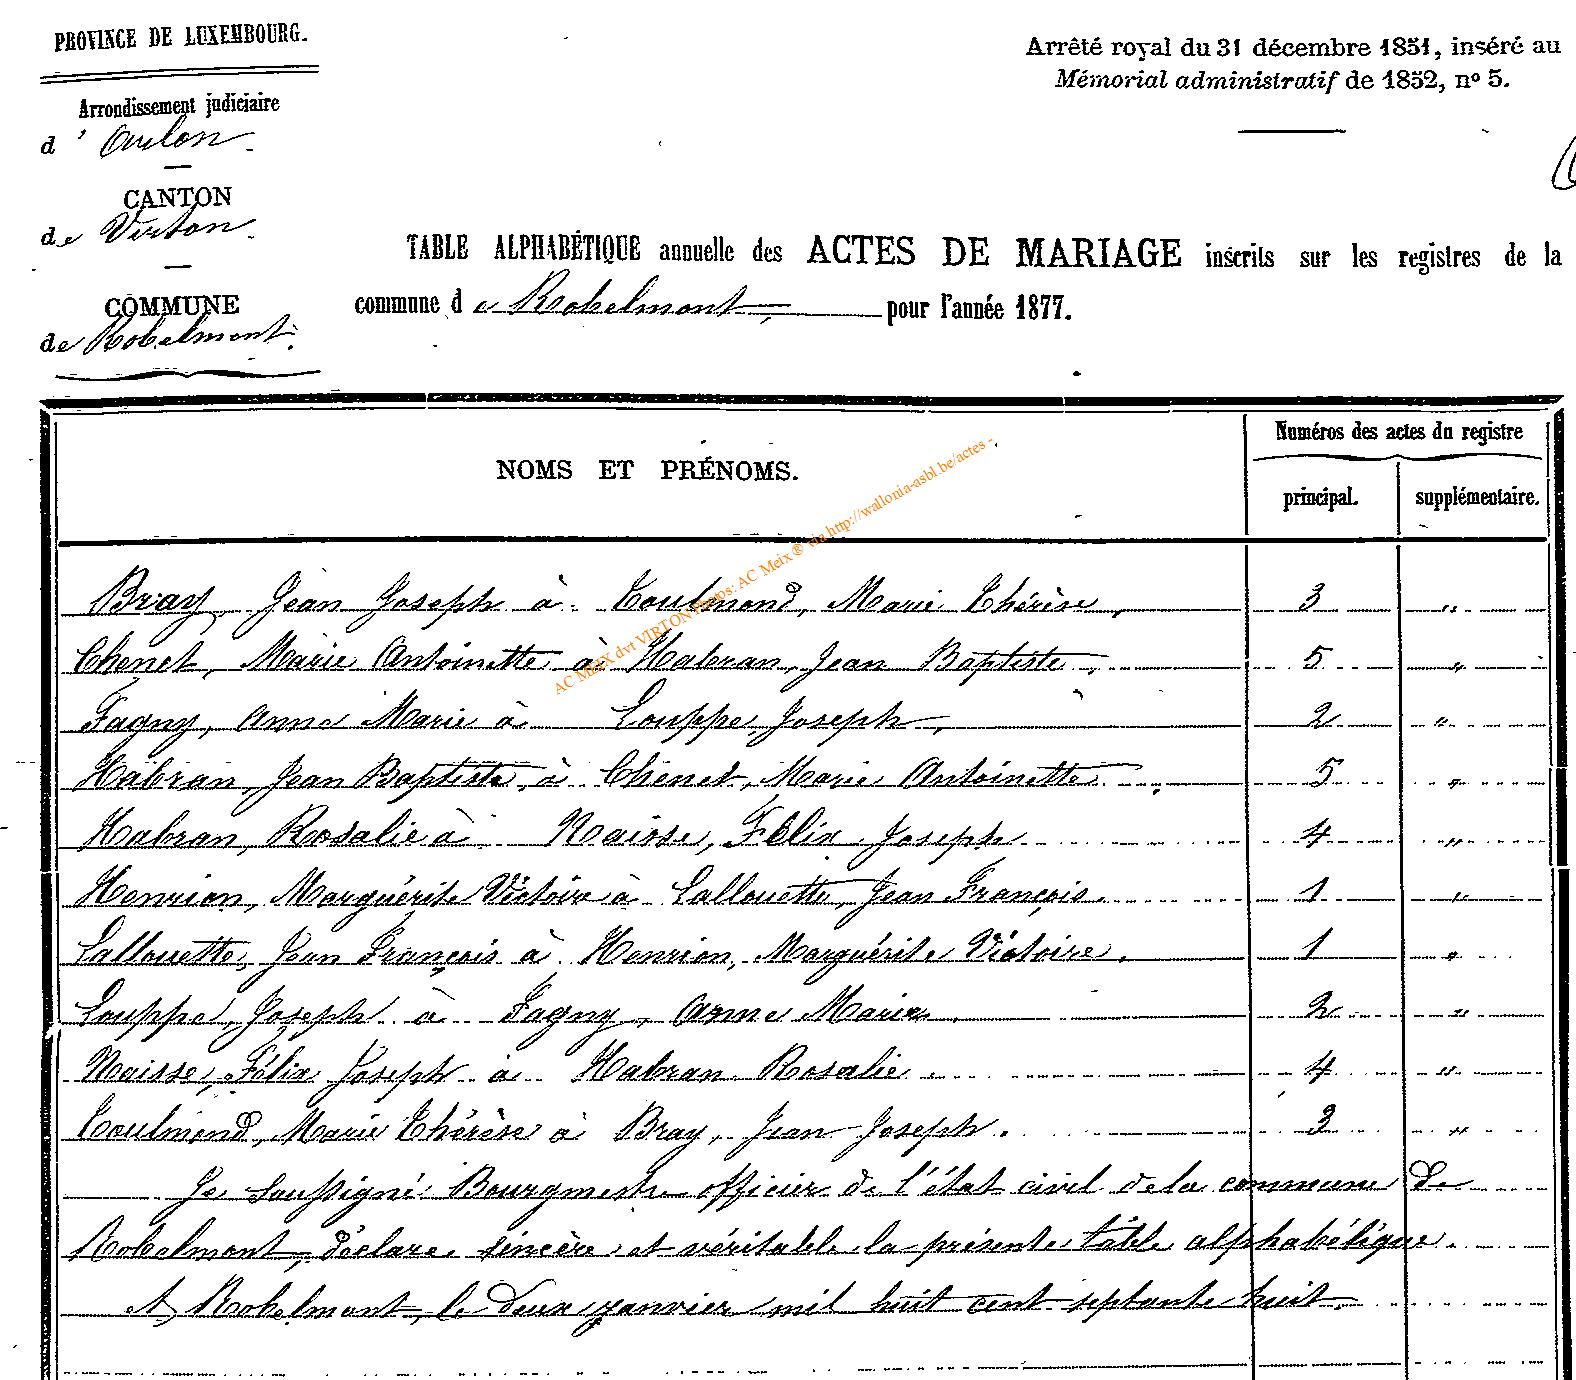 PROVINCE DE LUXEMBOURG.
Arrondissement judiciaire
d' Arlon
CANTON
de Virton
COMMUNE
de Robelmont
Arrêté royal du 31 décembre 1851, inséré au
Mémorial administratif de 1852, nº 5.
TABLE ALPHABÉTIQUE annuelle des ACTES DE MARIAGE inscrits sur les registres de la
commune de Robelmont, pour l'année 1877.
NOMS ET PRÉNOMS.
Numéros des actes du registre
principal. supplémentaire.
AC Meix dvt VIRTON Photos: AC Meix ® via http://wallonia-asbl.be/actes -
Bray, Jean Joseph à Toulmond, Marie Thérèse, 3 "
Chenet, Marie Antoinette à Habran, Jean Baptiste, 5 "
Fagny, Anne Marie à Louppe, Joseph, 2 "
Habran, Jean Baptiste, à Chenet, Marie Antoinette 5 "
Habran, Rosalie à Naisse, Félix Joseph 4 "
Henrion, Marguérite Victoire à Lallouette, Jean François. 1 "
Lallouette, Jean François à Henrion, Marguérite Victoire. 1 "
Louppe, Joseph à Fagny, Anne Marie. 2 "
Naisse, Félix Joseph à Habran Rosalie. 4 "
Toulmond, Marie Thérèse à Bray, Jean Joseph. 3 "
Je soussigné Bourgmestre officier de l'état civil de la commune de
Robelmont, déclare sincère et véritable la présente table alphabétique.
A Robelmont, le deux janvier mil huit cent septante huit.